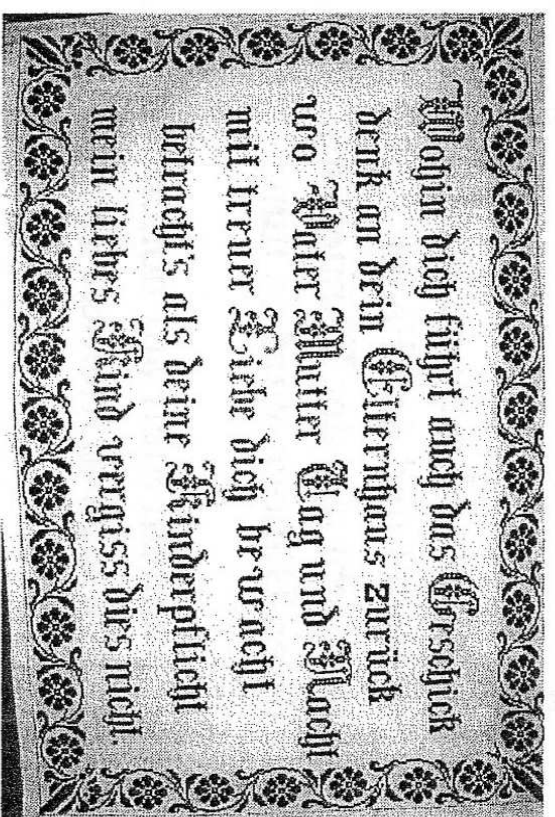 Wohin dich führt auch das Geschick
denk an dein Elternhaus zurück
wo Vater Mutter Tag und Nacht
mit treuer Liebe dich bewacht
betracht's als deine Kinderpflicht
mein liebes Kind vergiss dies nicht.